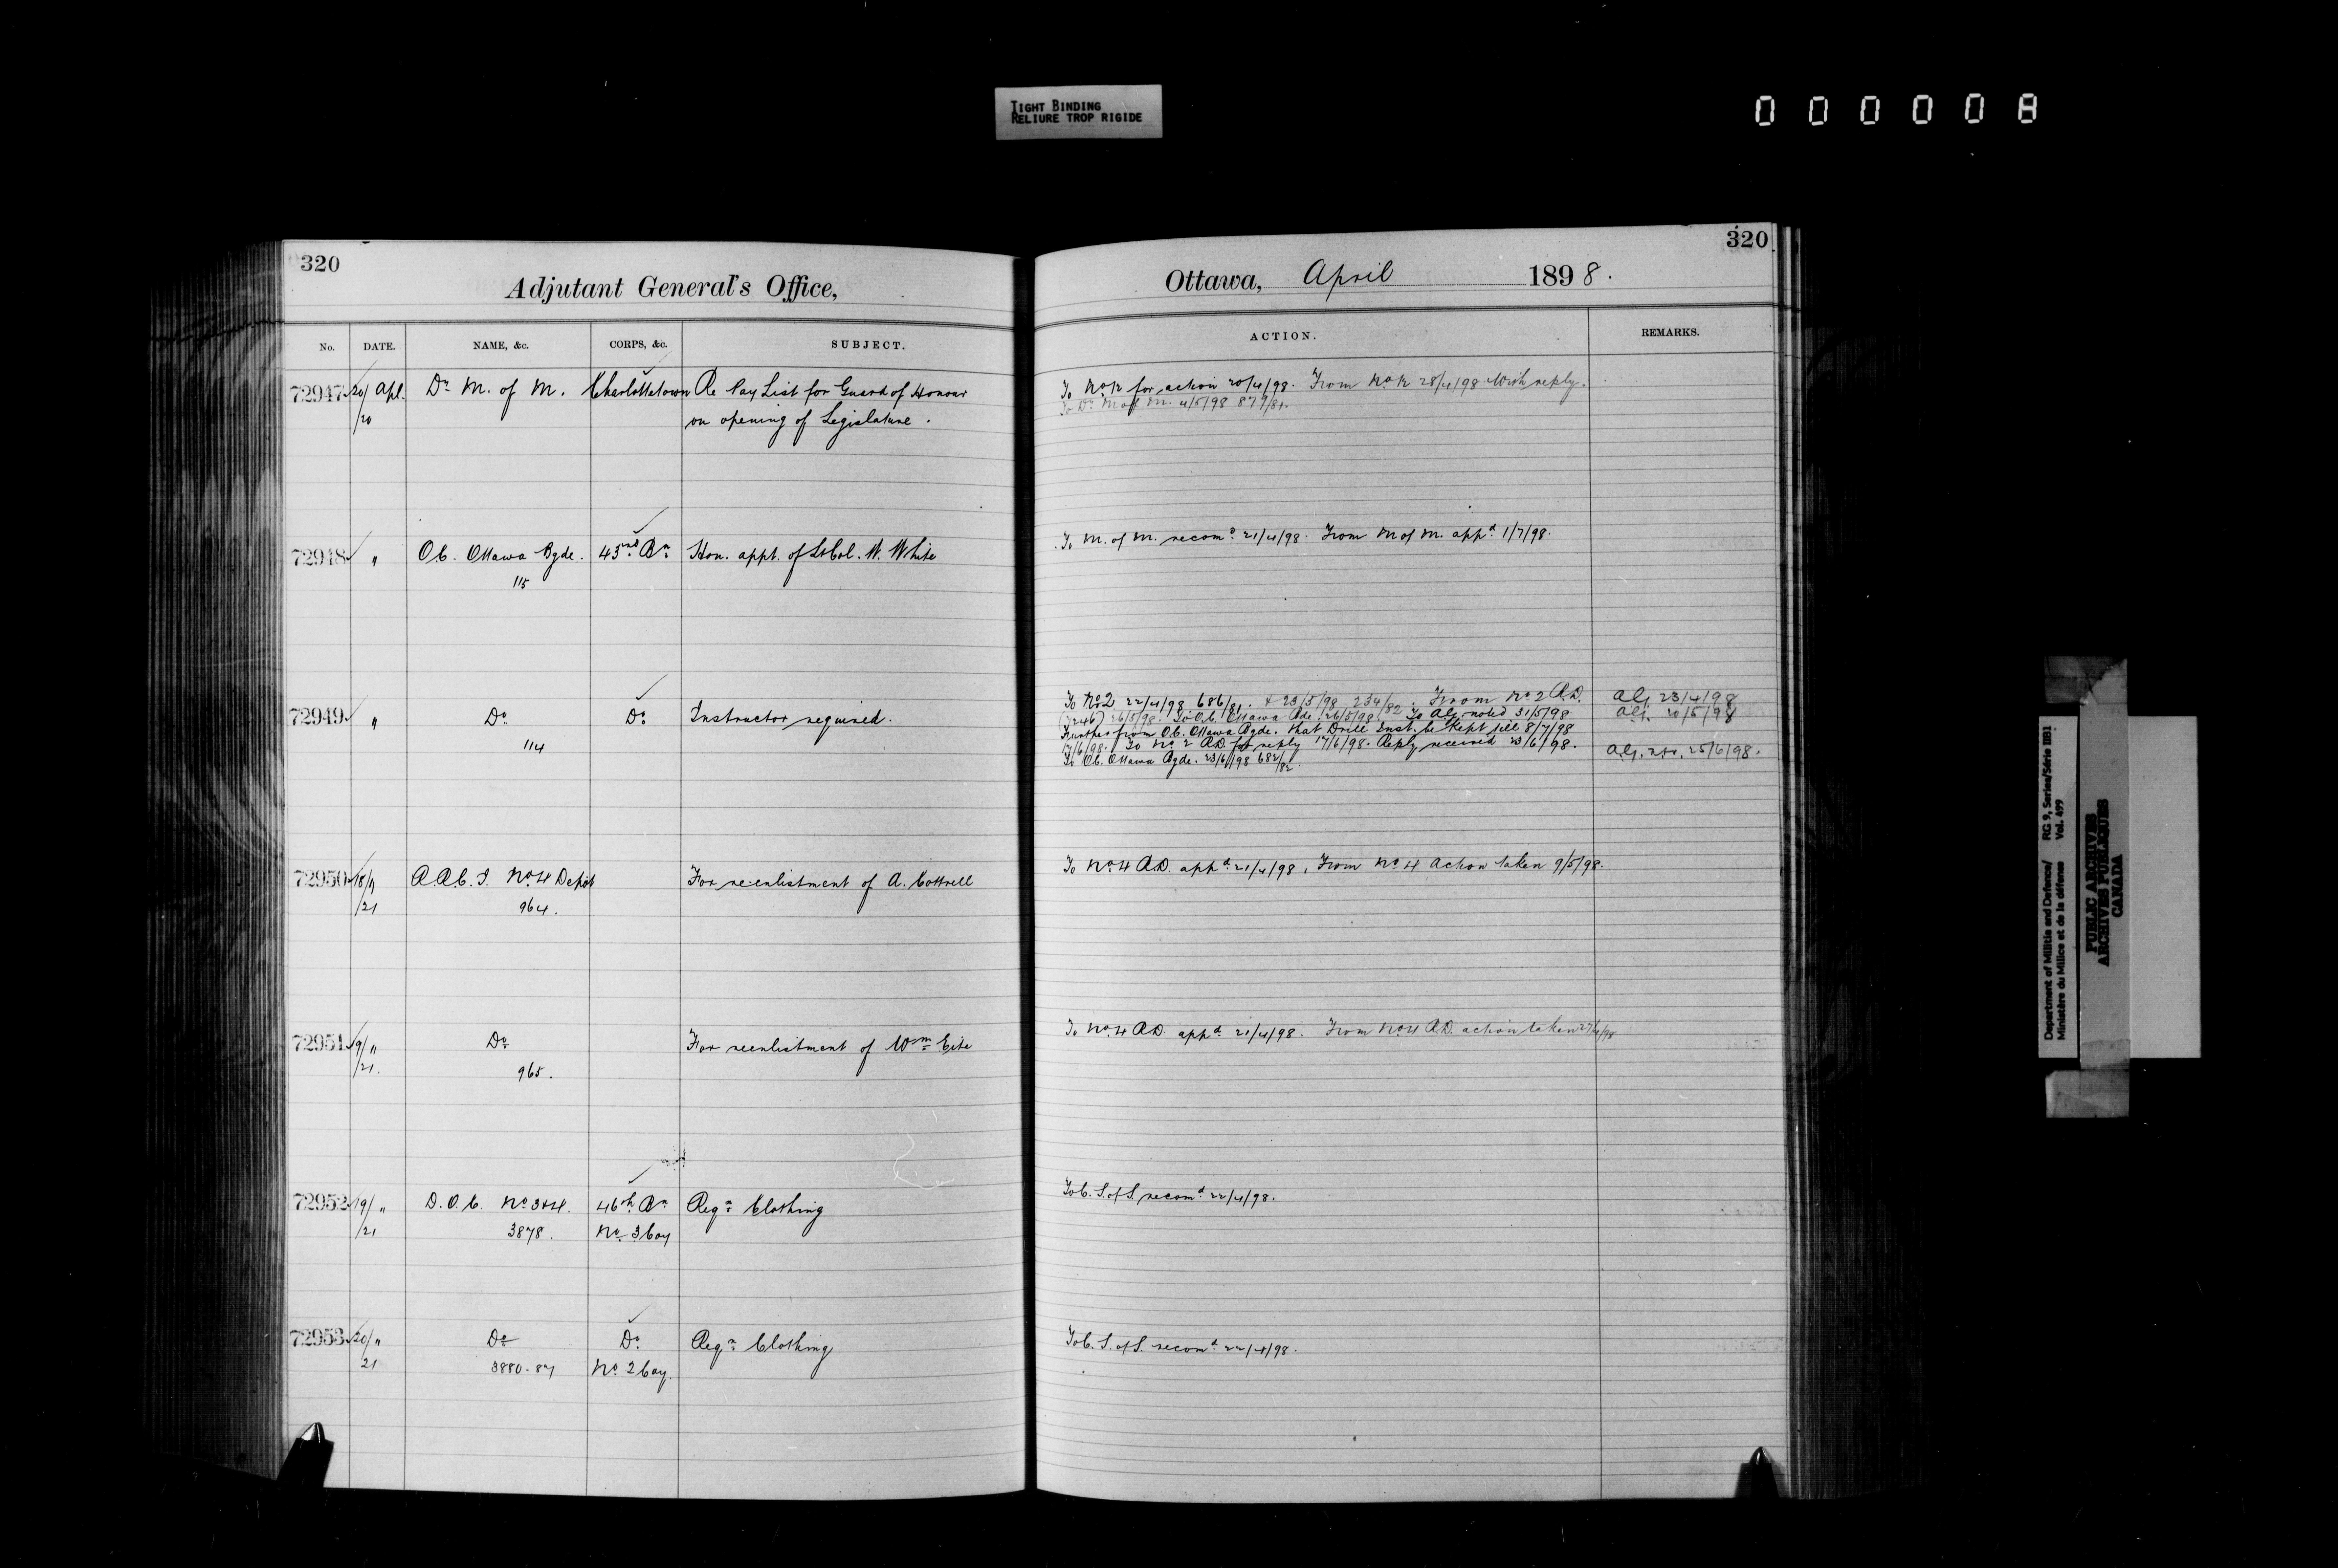 TIGHT BINDING
RELIURE TROP RIGIDE
0 0 0 0 0 8
320
Adjutant General's Office,
No. DATE. NAME, &c. CORPS, &c. SUBJECT.
72947 20/ Apl. Dr M. of M. Charlottetown Re Pay List for Guard of Honour
/20 on opening of Legislature.
72948 " O.C. Ottawa Bgde. 43rd Bn Hon. appt. of Lt Col. W. White
115
72949 " Do Do Instructor required.
114
72950 18/ A.A.C.I. No 4 Depot For reenlistment of A. Cottrell
/21 964.
72951 19/ " Do For reenlistment of Wm
/21. 965.
72952 19/ " D.O.C. No 3&4. 46th Bn Reqn Clothing
/21 3878. No. 3 Coy
72953 20/ " Do Do Reqn Clothing
21 3880-87 No 2 Coy.
320
Ottawa, April 1898.
ACTION. REMARKS.
To No 12 for action 20/4/98. From No 12 28/4/98 with reply.
To Dr M of M. 4/5/98 879/81.
To M. of M. recomd 21/4/98. From M of M. appd 1/7/98.
To No 2 22/4/98 686/81. & 23/5/98 234/82. From No 2 A.D. alj. 23/4/98
26/5/98. To O.C. Ottawa Bde. 26/5/98. To alj. noted 31/5/98 alj. 20/5/98
Further from O.C. Ottawa Bgde. that Drill Inst. be kept till 8/7/98
17/6/98. To No 2 A.D. for reply 17/6/98. Reply received 23/6/98. 25/6/98.
To O.C. Ottawa Bgde. 23/6/98 682/82
To No 4 A.D. appd 21/4/98. From No 4 action taken 9/5/98.
To No 4 A.D. appd 21/4/98. From No 4 A.D. action taken
To C. S. of S. recomd 22/4/98.
To C. S. of S. recomd 22/4/98.
Department of Militia and Defence/ RG 9, Series/Série IIB1
Ministère du Milice et de la défense Vol. 499
PUBLIC ARCHIVES
ARCHIVES PUBLIQUES
CANADA